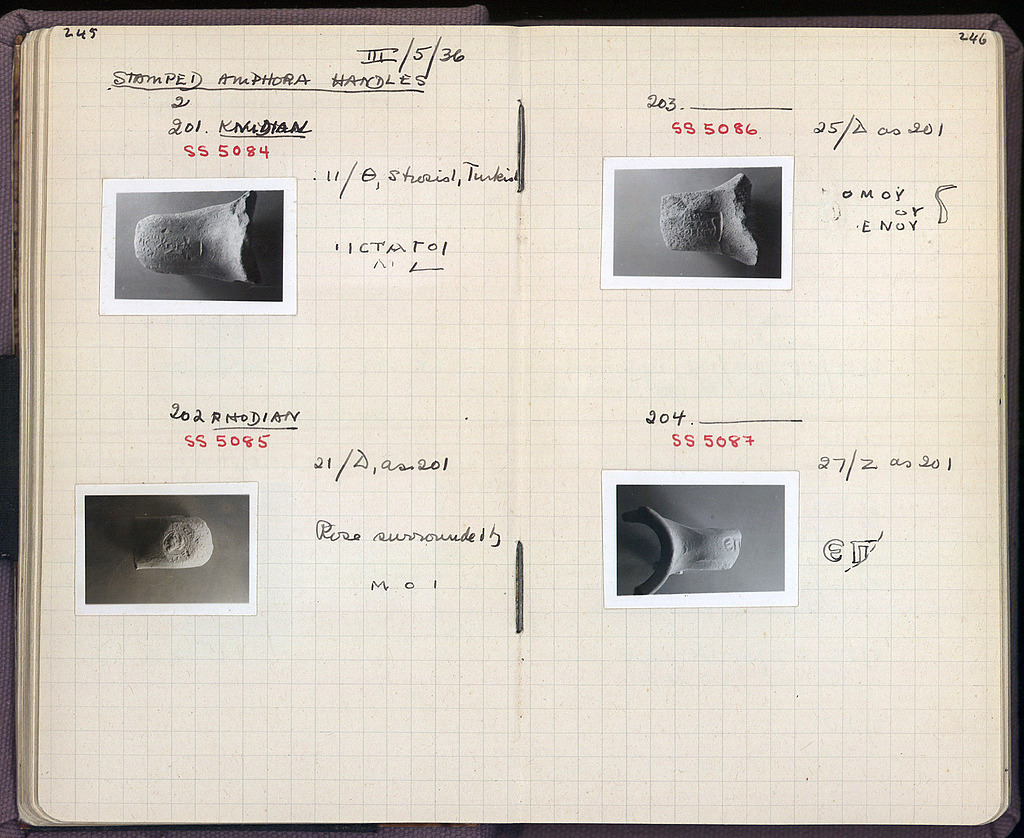 245
III/5/36
STAMPED AMPHORA HANDLES
2
201. KNIDIAN
SS 5084
11/Θ, Strosid, Turkish
ΙΙCΤΑΓΟΙ
202 RHODIAN
SS 5085
21/Δ, as 201
Rose surrounded by
M O I
246
203.
SS 5086
25/Δ as 201
ΟΜΟΥ
ΟΥ
ΕΝΟΥ
204.
SS 5087
27/Z as 201
ЄΠ